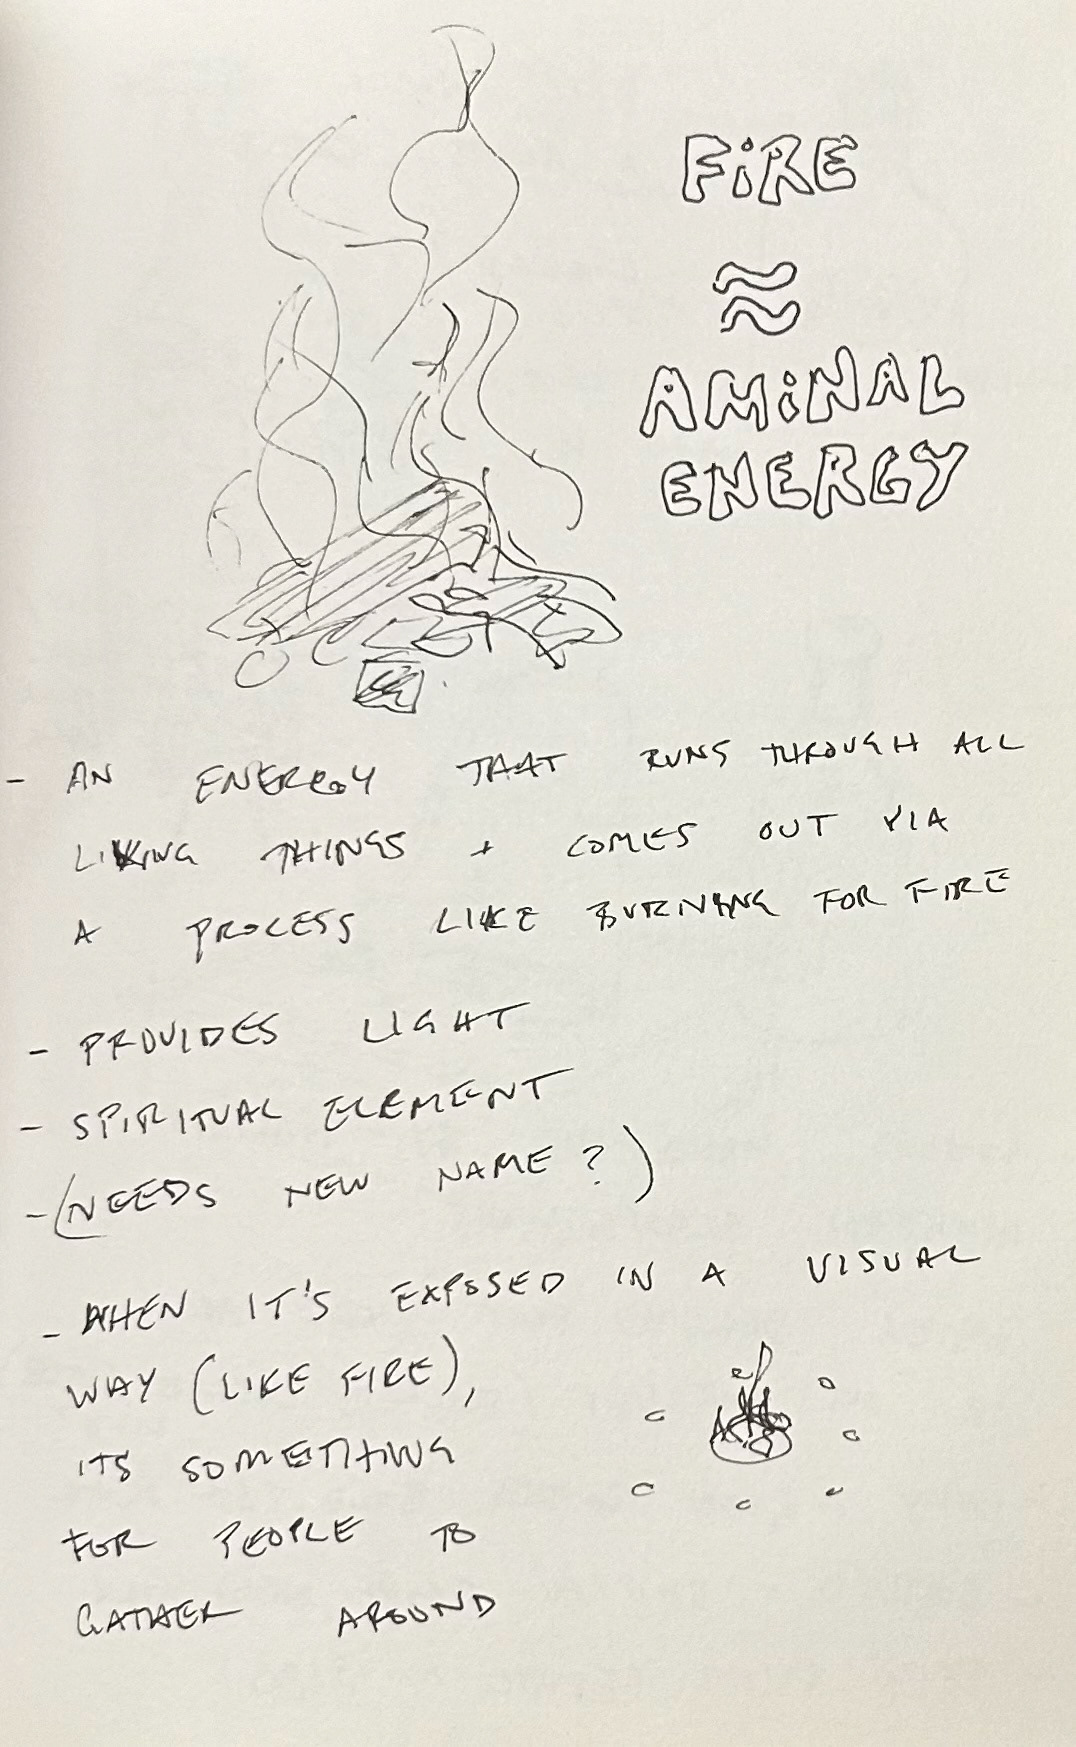 FIRE
≈
AMINAL
ENERGY
- AN ENERGY THAT RUNS THROUGH ALL
LIVING THINGS + COMES OUT VIA
A PROCESS LIKE BURNING FOR FIRE
- PROVIDES LIGHT
- SPIRITUAL ELEMENT
- (NEEDS NEW NAME?)
- WHEN IT'S EXPOSED IN A VISUAL
WAY (LIKE FIRE),
ITS SOMETHING
FOR PEOPLE TO
GATHER AROUND